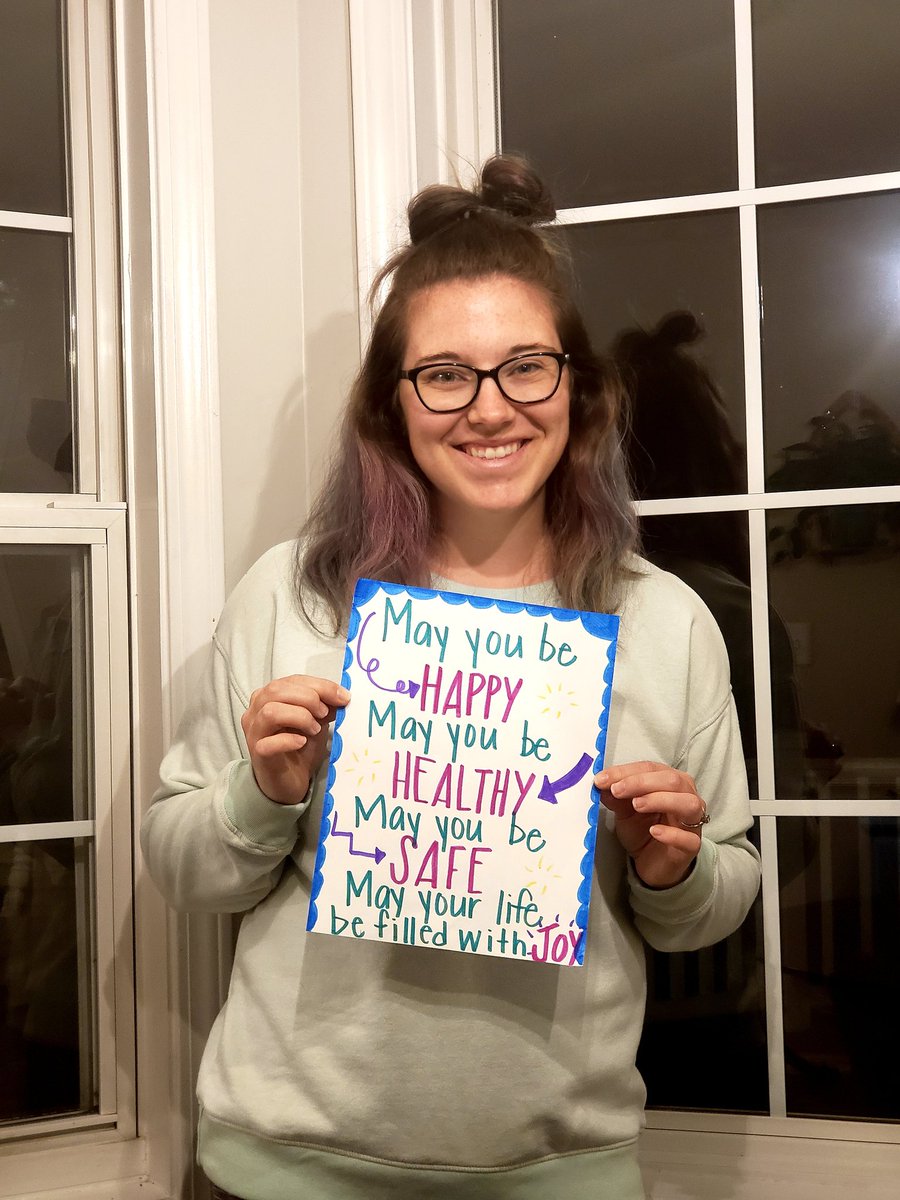 May you be
HAPPY
May you be
HEALTHY
May you be
SAFE
May your life
be filled with JOY